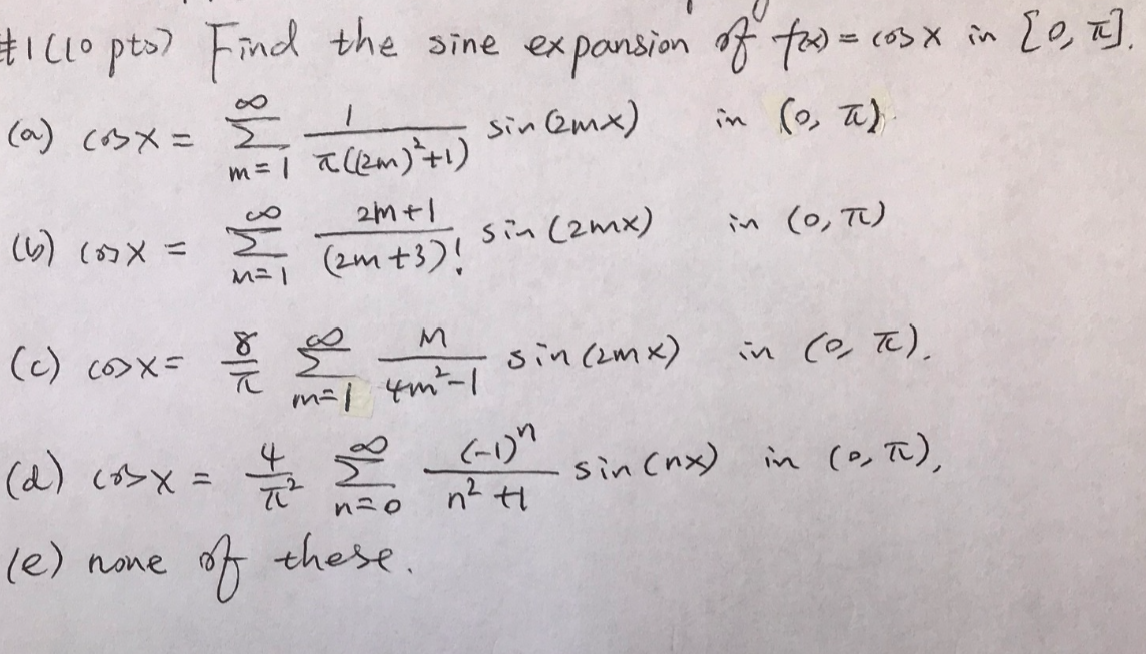 #1 (10 pts) Find the sine expansion of f(x) = cos x in [0, π].
(a) cos x = ∑_{m=1}^{∞} 1/(π((2m)²+1)) sin(2mx) in (0, π).
(b) cos x = ∑_{m=1}^{∞} (2m+1)/(2m+3)! sin(2mx) in (0, π)
(c) cos x = 8/π ∑_{m=1}^{∞} m/(4m²-1) sin(2mx) in (0, π).
(d) cos x = 4/π² ∑_{n=0}^{∞} (-1)ⁿ/(n²+1) sin(nx) in (0, π),
(e) none of these.